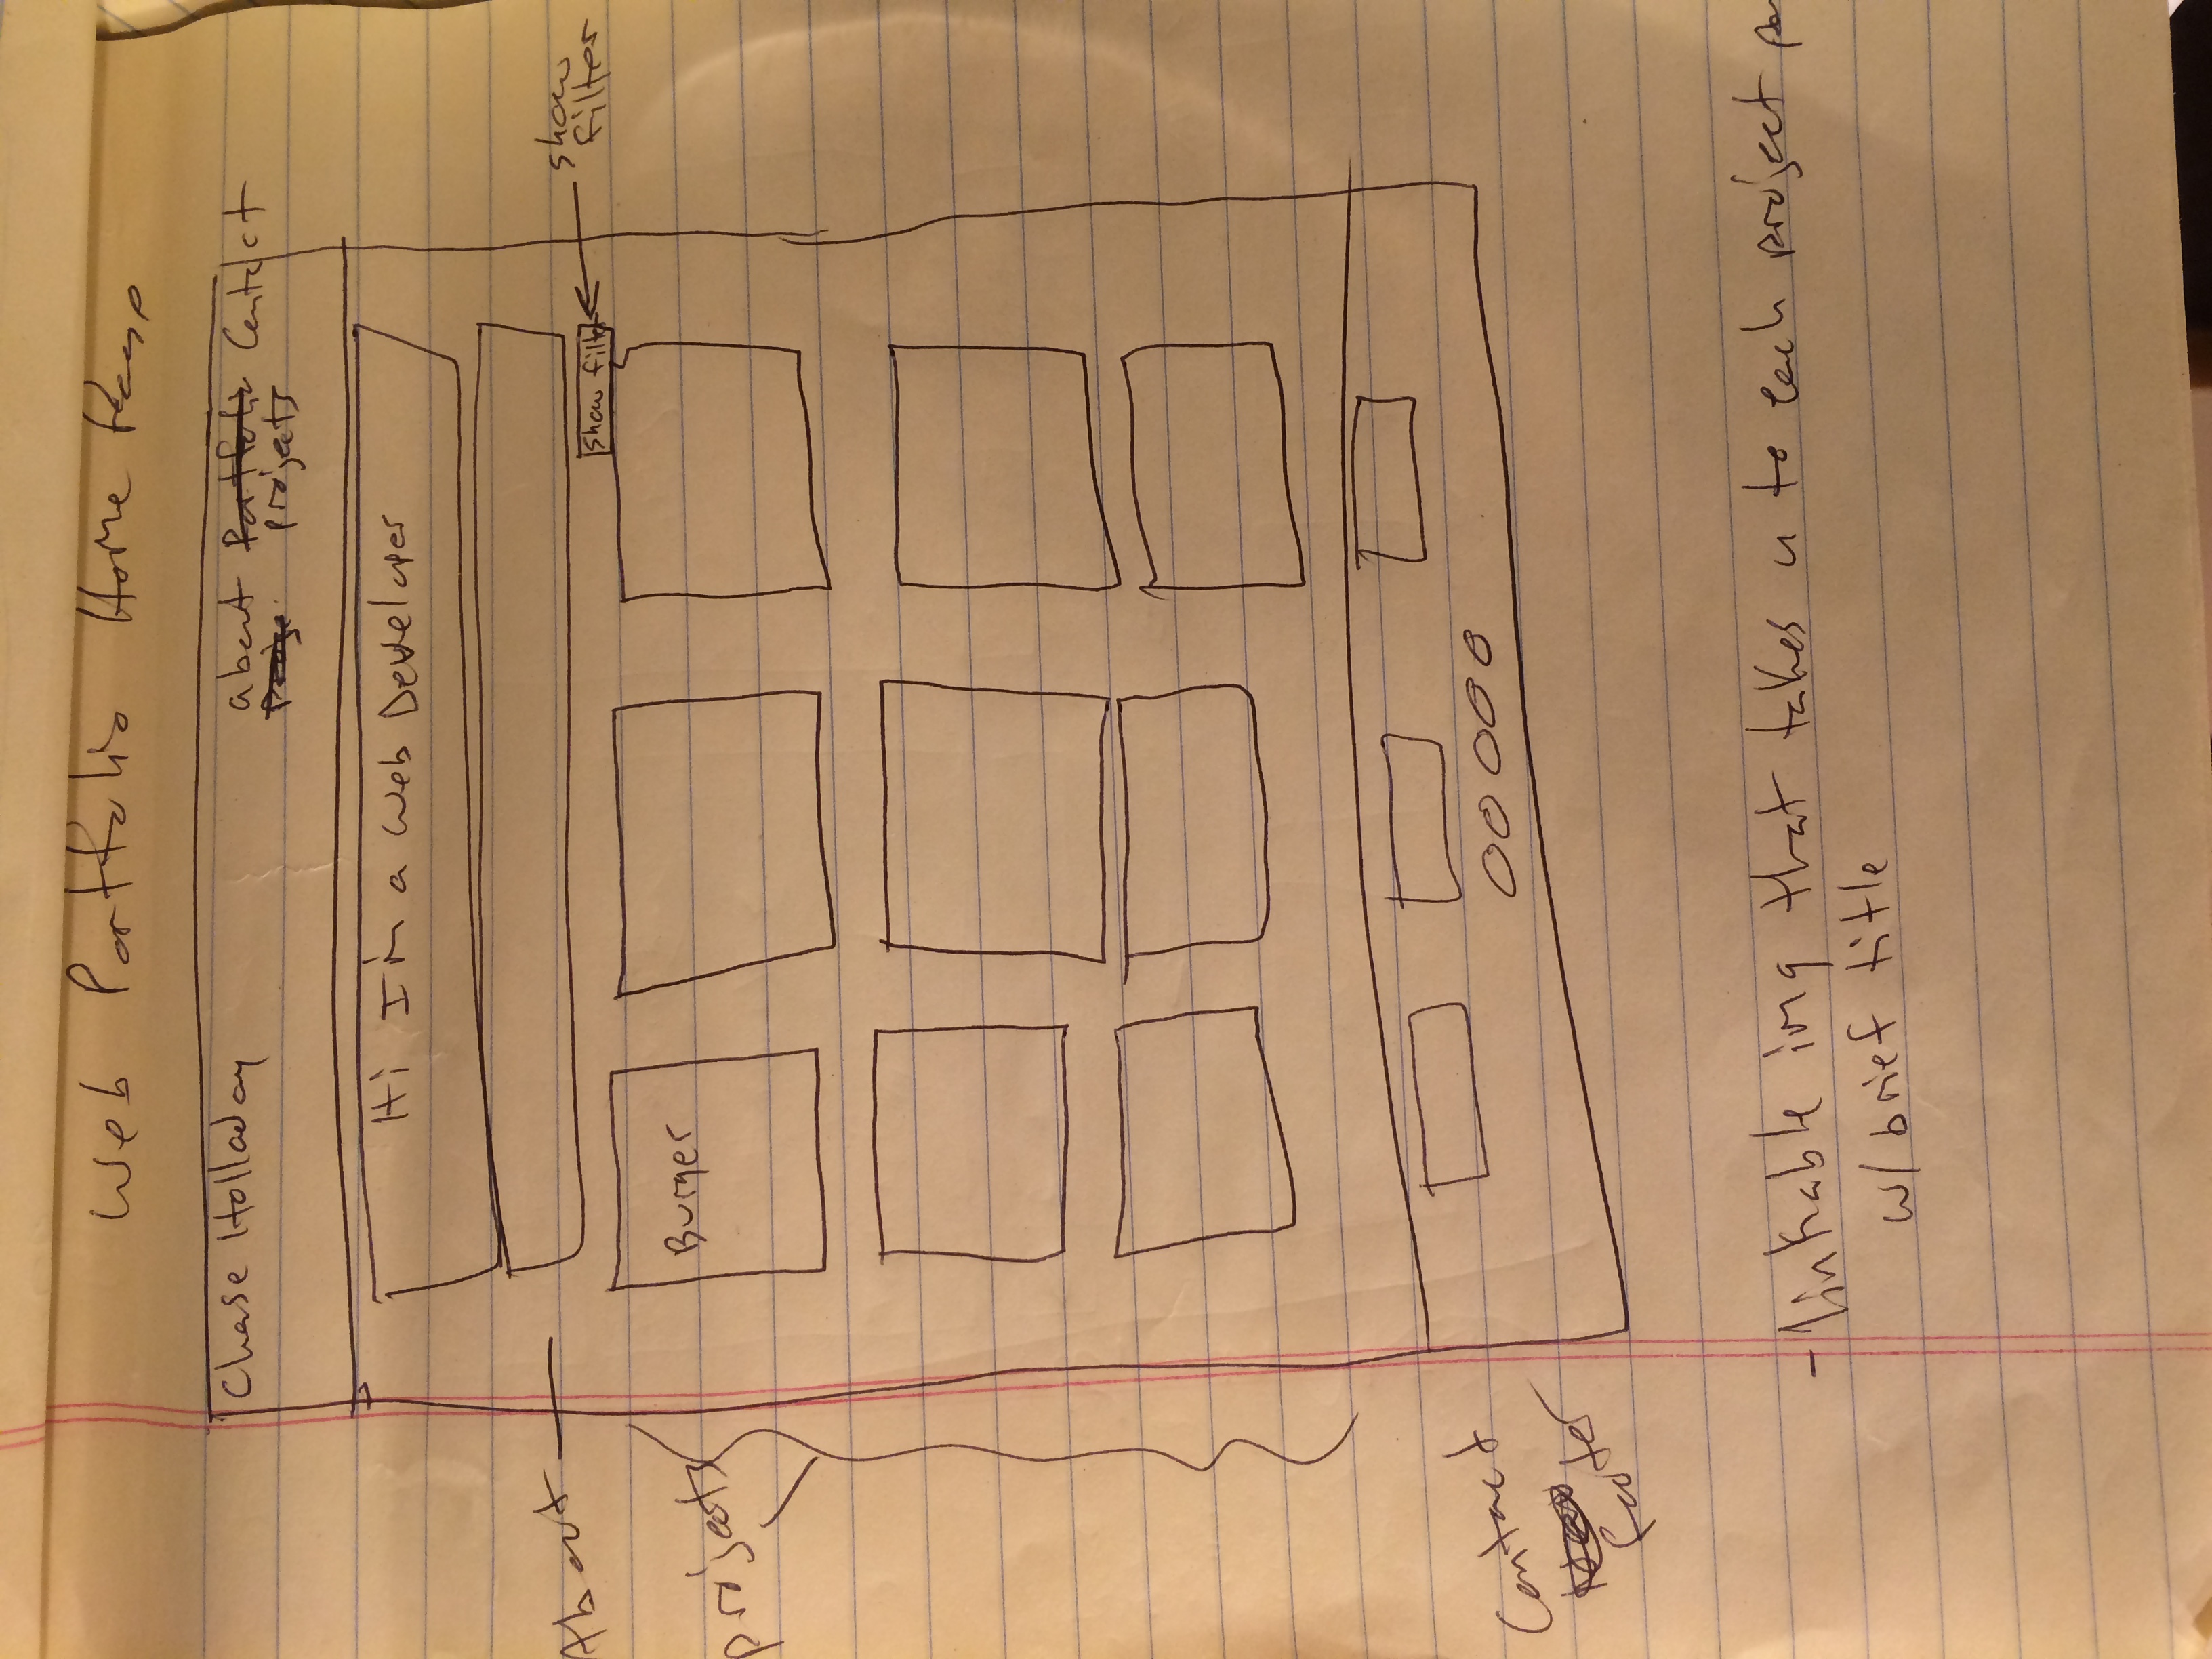 Web Portfolio Home Page
Chase Holladay
about Portfolio Contact
projects
Hi I'm a Web Developer
About
show filter
show
filter
projects
Burger
Contact
footer
00000
- linkable img that takes u to each project
w/ brief title